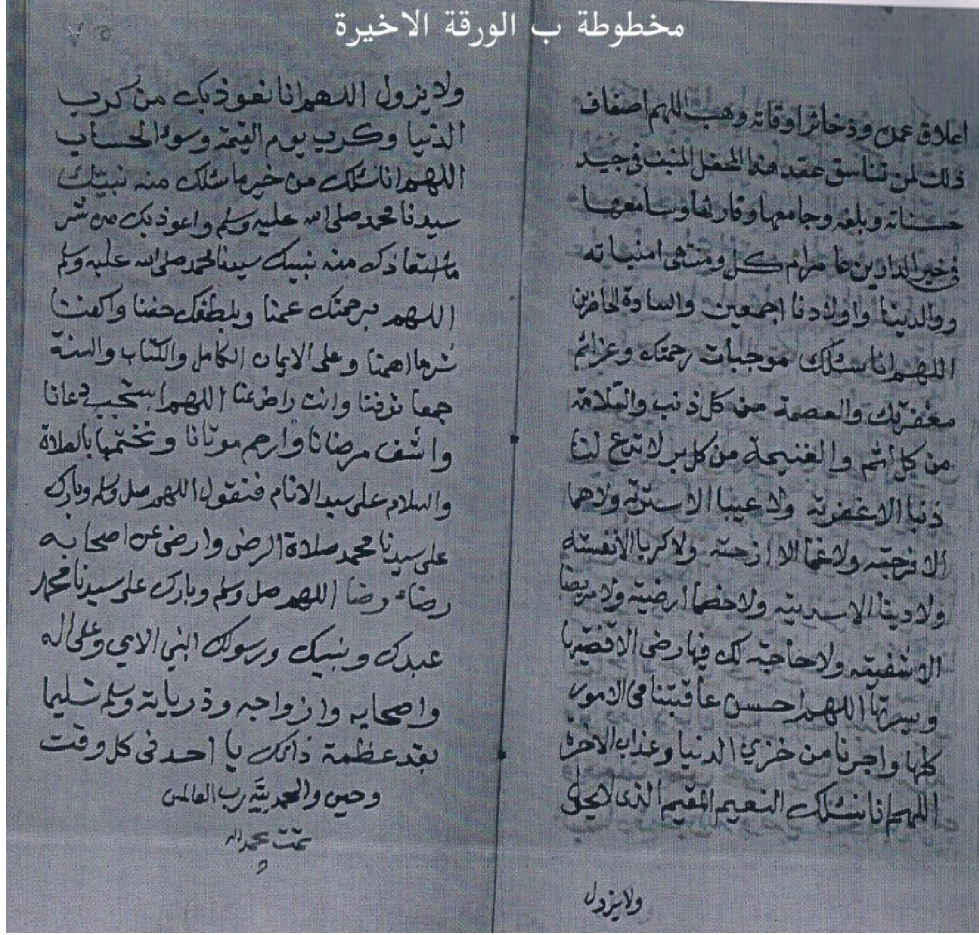 مخطوطة ب الورقة الاخيرة
اعلاق عمن وذخائر اوقاته وهب اللهم اضعاف
ذلك لمن تناسق عقد هذا المحفل المنبت في جيد
حسناته وبلغه وجامعها وقارئها وسامعها
في خير الدارين مرام كل ومنتهى امنياته
ووالدينا واولادنا اجمعين والسادة الحاضرين
اللهم انا نسئلك موجبات رحمتك وعزائم
مغفرتك والعصمة من كل ذنب والسلامة
من كل اثم والغنيمة من كل بر لا تدع لنا
ذنبا الا غفرته ولا عيبا الا سترته ولا هما
الا فرجته ولا غما الا ازحته ولا كربا الا نفسته
ولا دينا الا سديته ولا خصما ارضيته ولا مريضا
الا شفيته ولا حاجة لك فيها رضى الا قضيتها
ويسرتها اللهم احسن عاقبتنا في الامور
كلها واجرنا من خزي الدنيا وعذاب الآخرة
اللهم انا نسئلك النعيم المقيم الذى لا يحول
ولا يزول
ولا يزول اللهم انا نعوذ بك من كرب
الدنيا وكرب يوم القيمة وسوء الحساب
اللهم انا نسئلك من خير ما سئلك منه نبيك
سيدنا محمد صلى الله عليه وسلم واعوذ بك من شر
ما استعاذك منه نبيك سيدنا محمد صلى الله عليه وسلم
اللهم برحمتك عمنا وبلطفك حفنا واكفنا
شر ما اهمنا وعلى الايمان الكامل والكتاب والسنة
جمعا توفنا وانت راض عنا اللهم استجب دعانا
واشف مرضانا وارحم موتانا ونختمها بالصلاة
والسلام على سيد الانام فنقول اللهم صل وسلم وبارك
على سيدنا محمد صلاة الرضى وارضى عن اصحابه
رضاء رضا اللهم صل وسلم وبارك على سيدنا محمد
عبدك ونبيك ورسولك النبي الامي وعلى اله
واصحابه وازواجه وذرياته وسلم تسليما
بقدر عظمة ذاتك يا احد في كل وقت
وحين والحمد لله رب العالمين
تمت بحمد الله